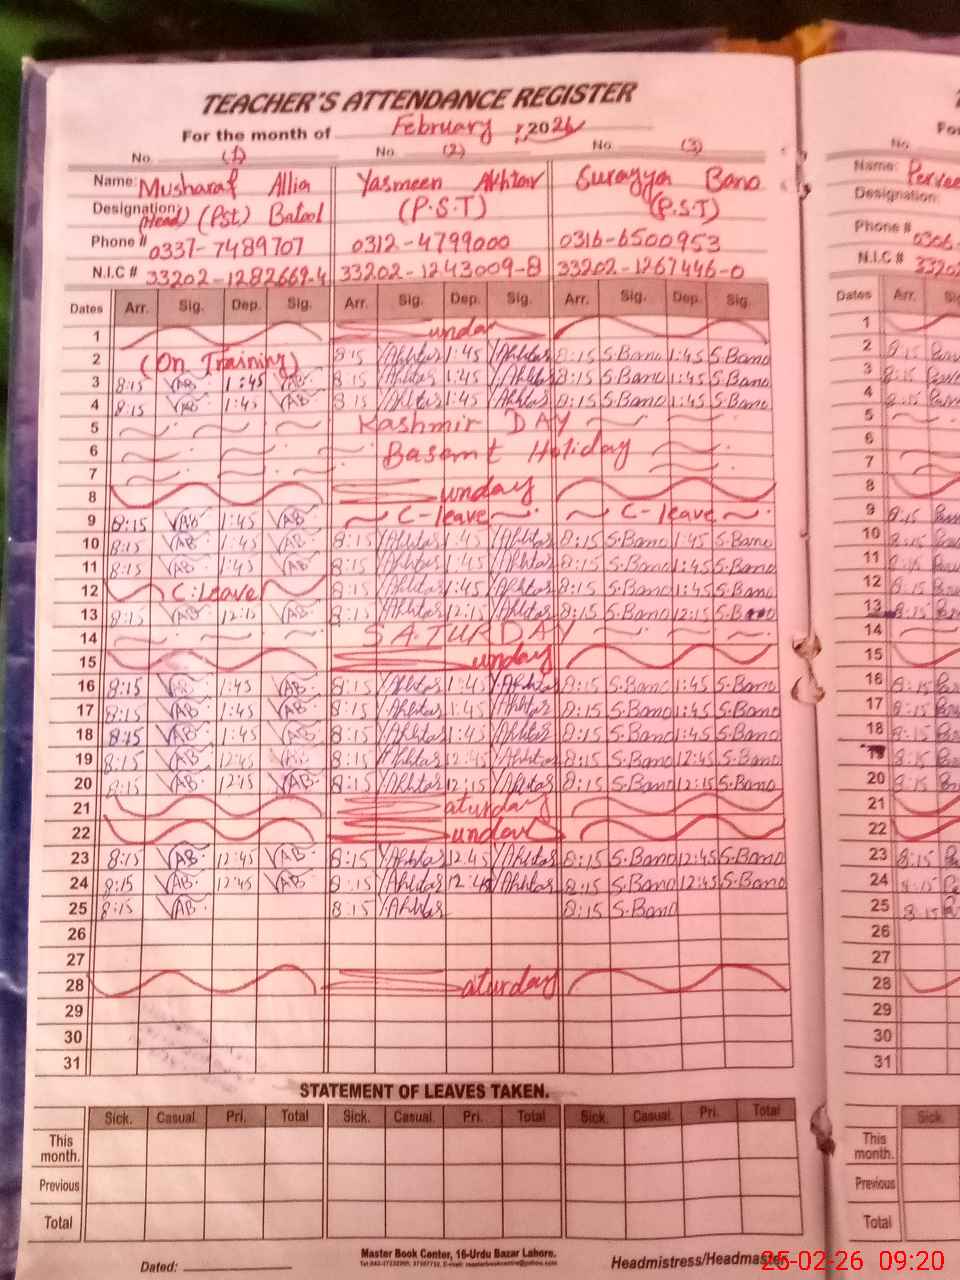 TEACHER'S ATTENDANCE REGISTER
For the month of February, 2026
No. (1) No. (2) No. (3)
Name: Musharaf Allia Yasmeen Akhtar Surayya Bano
Designation: (Head) (Pst) Batool (P.S.T) (P.S.T)
Phone # 0337-7489707 0312-4799000 0316-6500953
N.I.C # 33202-1282669-4 33202-1243009-8 33202-1267446-0
Dates Arr. Sig. Dep. Sig. Arr. Sig. Dep. Sig. Arr. Sig. Dep. Sig.
1 Sunday
2 (On Training) 8:15 YAkhtar 1:45 YAkhtar 8:15 S.Bano 1:45 S.Bano
3 8:15 AB 1:45 AB 8:15 YAkhtar 1:45 YAkhtar 8:15 S.Bano 1:45 S.Bano
4 8:15 AB 1:45 AB 8:15 YAkhtar 1:45 YAkhtar 8:15 S.Bano 1:45 S.Bano
5 Kashmir DAY
6 Basant Holiday
7
8 Sunday
9 8:15 AB 1:45 AB C-leave C-leave
10 8:15 AB 1:45 AB 8:15 YAkhtar 1:45 YAkhtar 8:15 S.Bano 1:45 S.Bano
11 8:15 AB 1:45 AB 8:15 YAkhtar 1:45 YAkhtar 8:15 S.Bano 1:45 S.Bano
12 C.Leave 8:15 YAkhtar 1:45 YAkhtar 8:15 S.Bano 1:45 S.Bano
13 8:15 AB 12:15 AB 8:15 YAkhtar 12:15 YAkhtar 8:15 S.Bano 12:15 S.B
14 SATURDAY
15 Sunday
16 8:15 AB 1:45 AB 8:15 YAkhtar 1:45 YAkhtar 8:15 S.Bano 1:45 S.Bano
17 8:15 AB 1:45 AB 8:15 YAkhtar 1:45 YAkhtar 8:15 S.Bano 1:45 S.Bano
18 8:15 AB 1:45 AB 8:15 YAkhtar 1:45 YAkhtar 8:15 S.Bano 1:45 S.Bano
19 8:15 AB 12:45 AB 8:15 YAkhtar 12:45 YAkhtar 8:15 S.Bano 12:45 S.Bano
20 8:15 AB 12:15 AB 8:15 YAkhtar 12:15 YAkhtar 8:15 S.Bano 12:15 S.Bano
21 Saturday
22 Sunday
23 8:15 AB 12:45 AB 8:15 YAkhtar 12:45 YAkhtar 8:15 S.Bano 12:45 S.Bano
24 8:15 AB 12:45 AB 8:15 YAkhtar 12:45 YAkhtar 8:15 S.Bano 12:45 S.Bano
25 8:15 AB 8:15 YAkhtar 8:15 S.Bano
26
27
28 Saturday
29
30
31
STATEMENT OF LEAVES TAKEN.
Sick. Casual. Pri. Total Sick. Casual. Pri. Total Sick. Casual. Pri. Total
This month.
Previous
Total
Master Book Center, 16-Urdu Bazar Lahore.
Dated: Headmistress/Headmaster
No.
Name:
Designation:
Phone #
N.I.C #
Dates Arr.
1
2
3
4
5
6
7
8
9
10
11
12
13
14
15
16
17
18
19
20
21
22
23
24
25
26
27
28
29
30
31
Sick.
This month.
Previous
Total
25-02-26 09:20